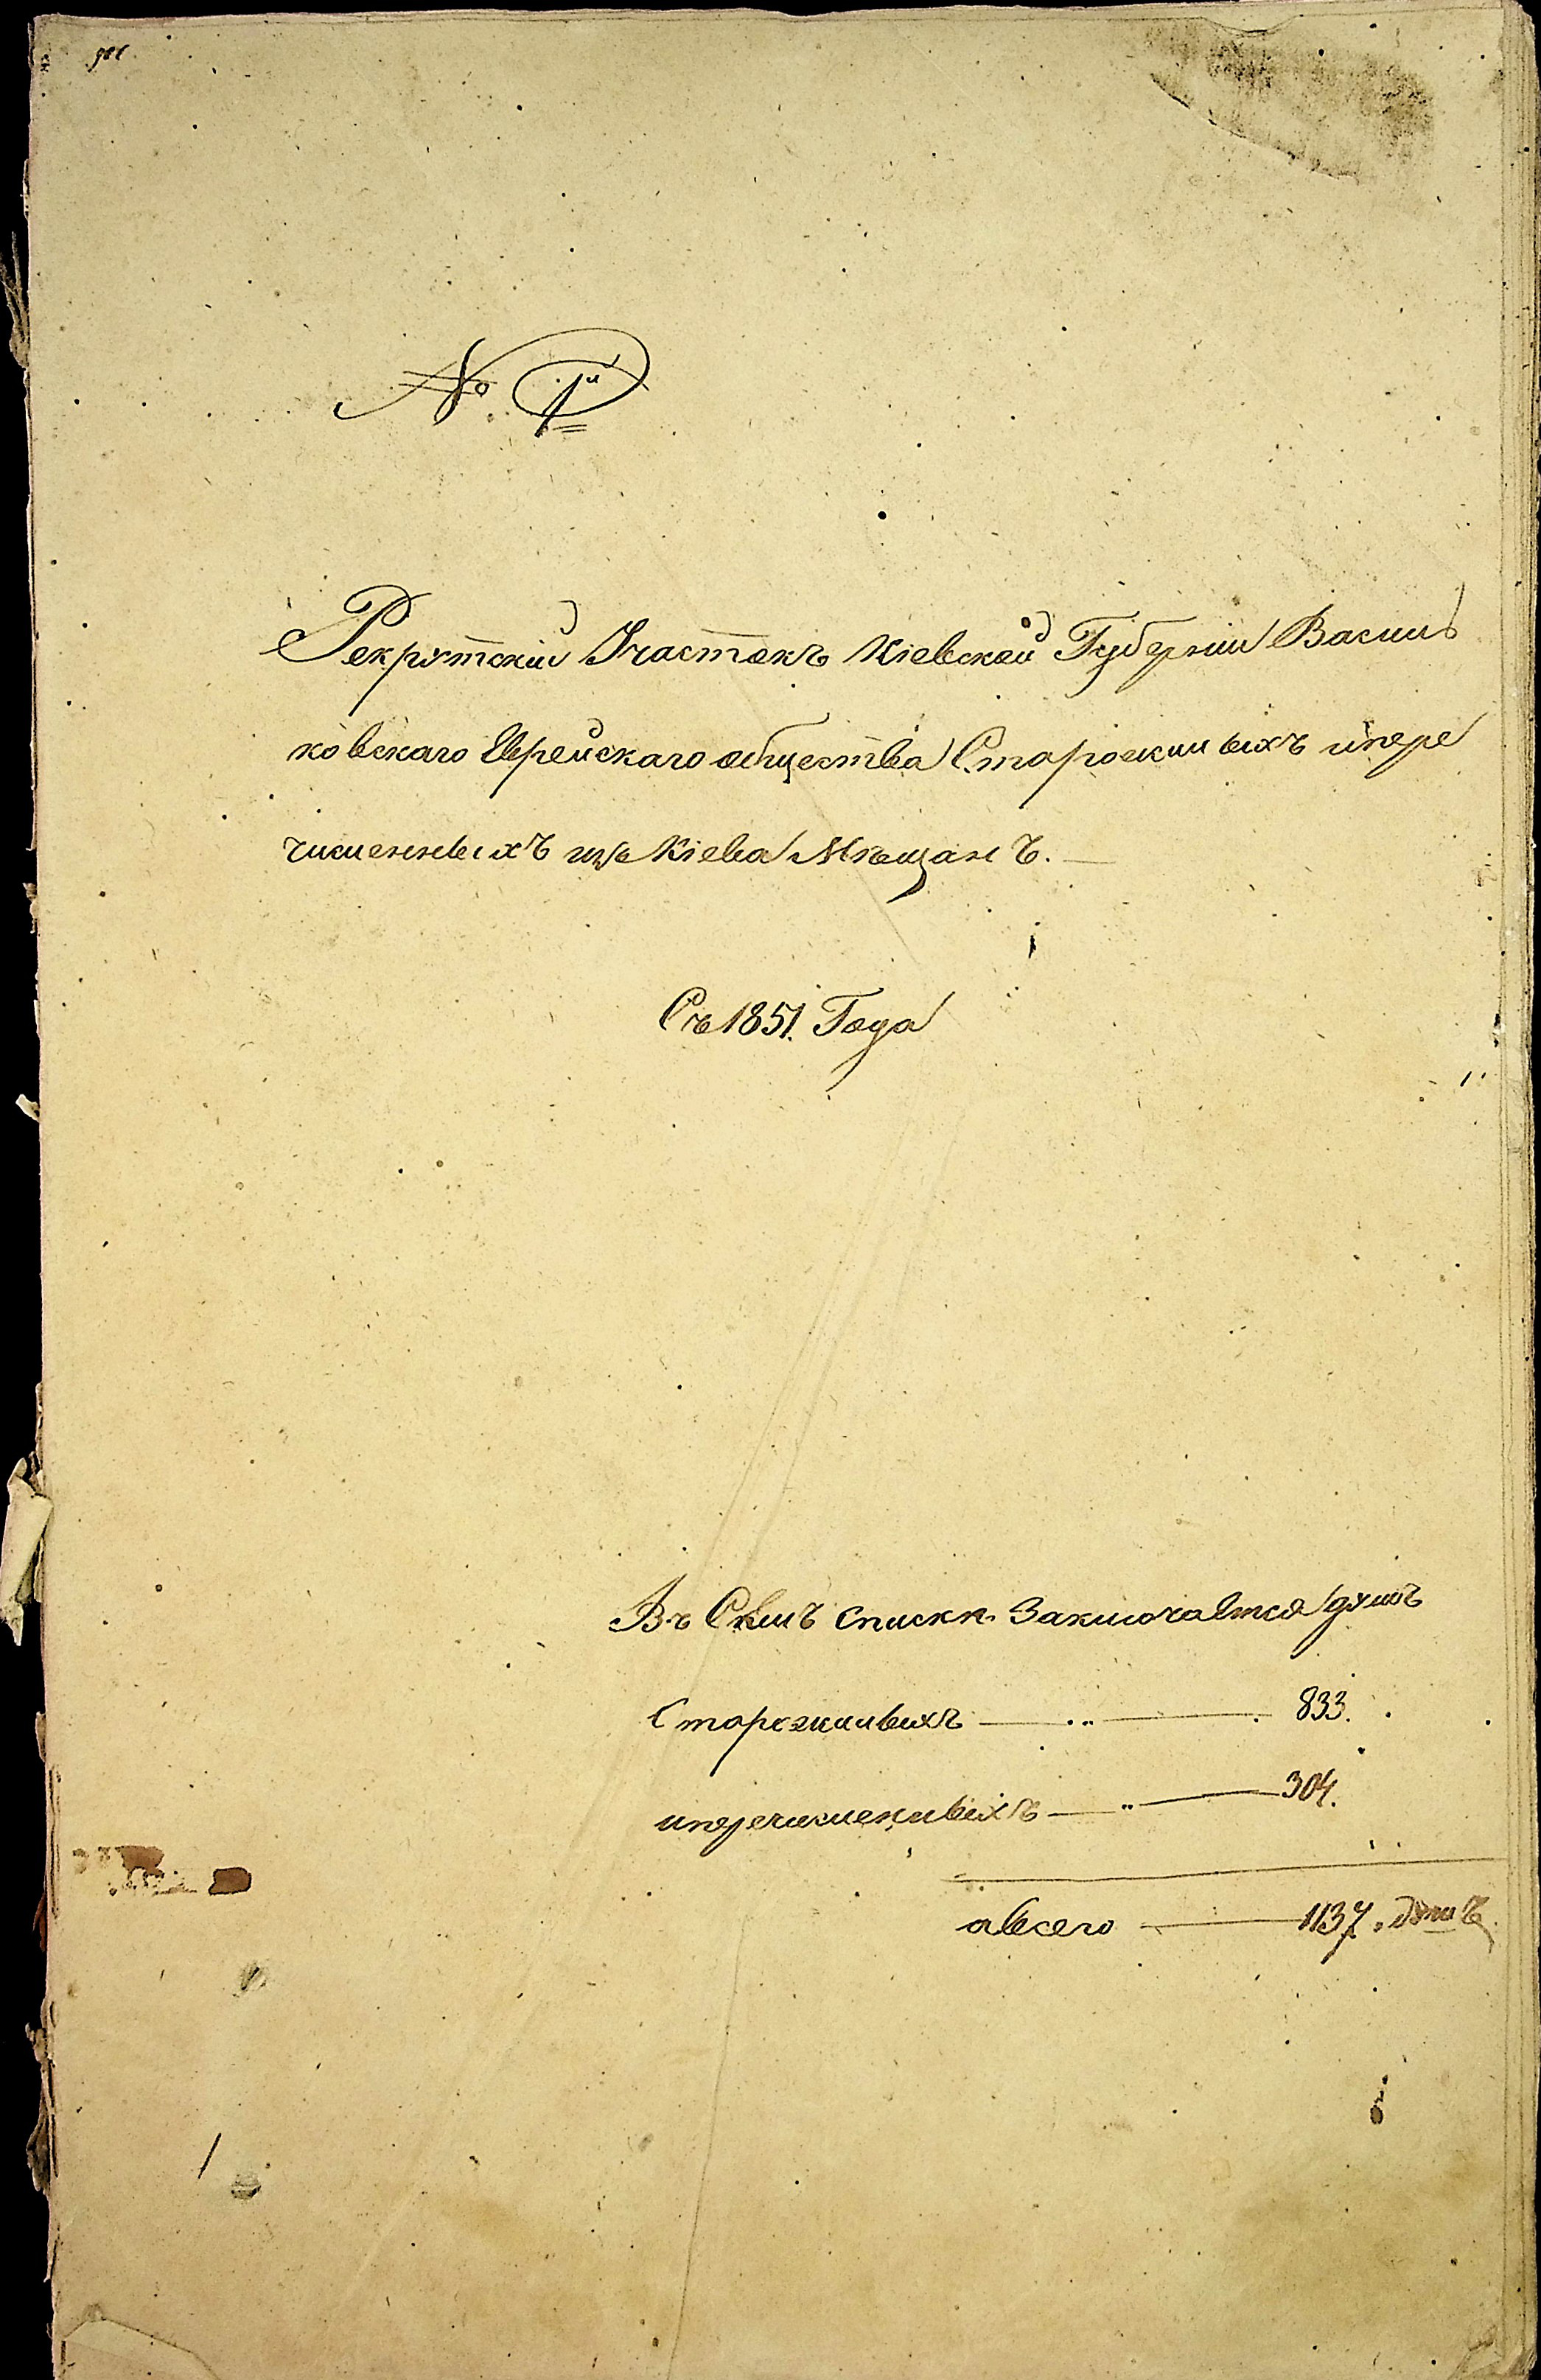 № 1й
Рекрутскій Участокъ Кіевской Губерніи Василь
ковскаго Еврейскаго общества Старожилыхъ ипере
численныхъ изъ Кіева Мѣщанъ.
Съ 1851. Года
Въ Сѣмъ спискѣ Заключается душъ
Старожилыхъ — 833.
иперечисленныхъ — 304.
авсего — 1137. душъ